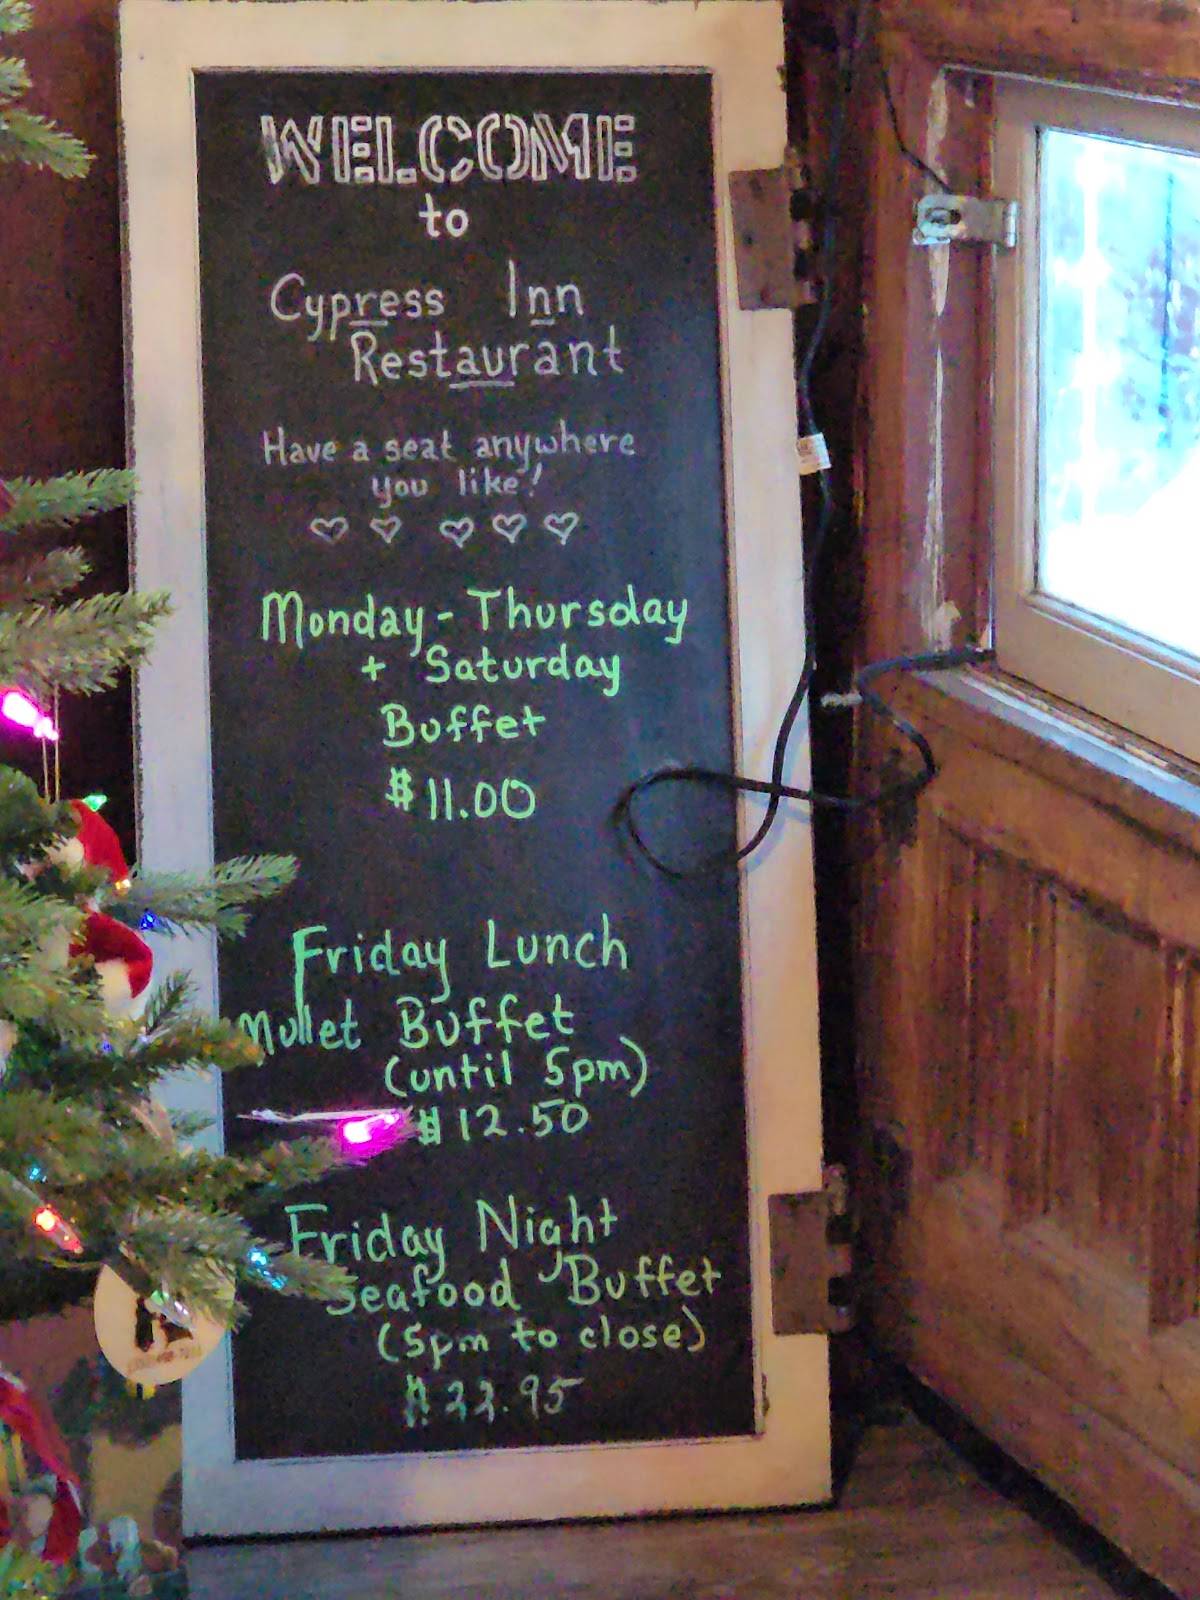 WELCOME
to
Cypress Inn
Restaurant
Have a seat anywhere
you like!
Monday - Thursday
+ Saturday
Buffet
$11.00
Friday Lunch
Mullet Buffet
(until 5pm)
$12.50
Friday Night
Seafood Buffet
(5pm to close)
$22.95